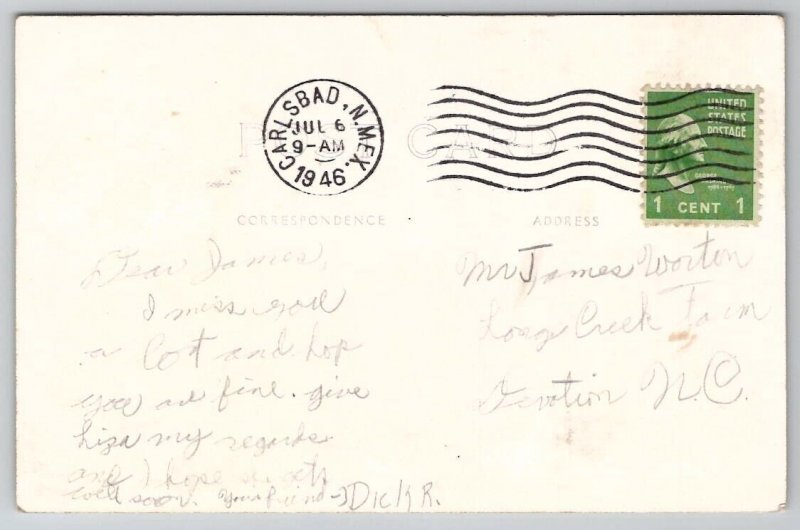 CARLSBAD, N.MEX.
JUL 6
9-AM
1946
UNITED
STATES
POSTAGE
1 CENT 1
POST CARD
CORRESPONDENCE
ADDRESS
Dear James,
I miss you
a Cot and hop
you ad fine. give
liza my regards
and I hope
well soon. Your friend -> Dick R.
Mr James Worton
Long Creek Farm
Devotion N.C.